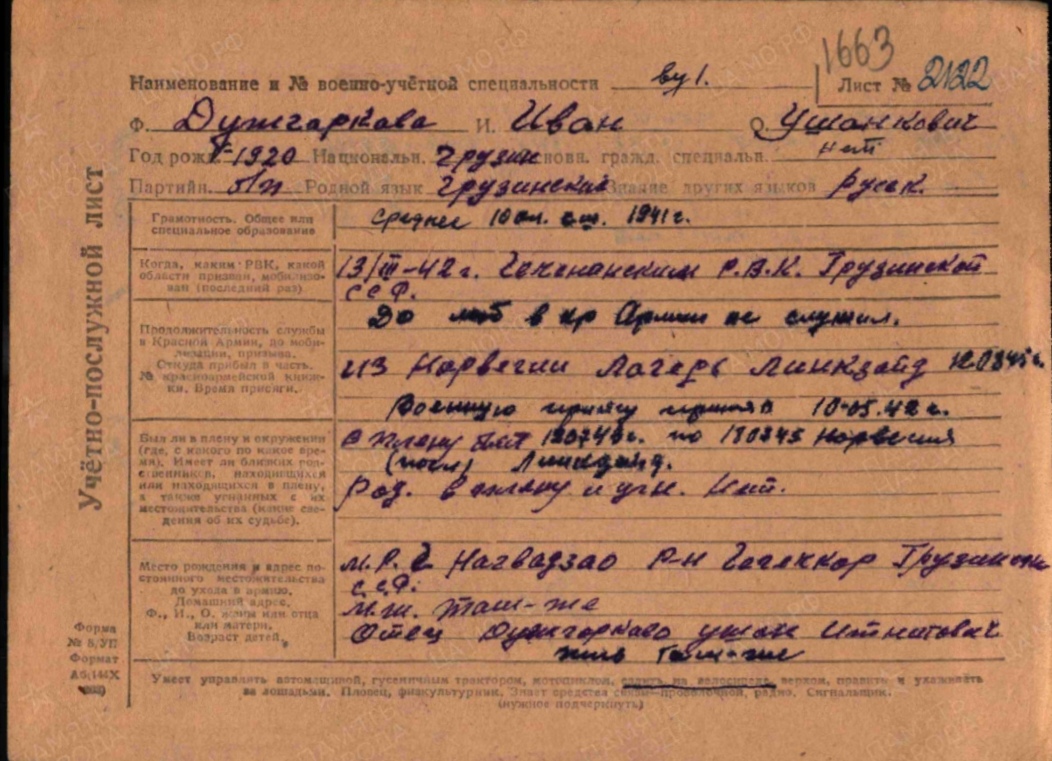 1663
Наименование и № военно-учётной специальности ву 1. Лист № 2122
Ф. Дужгаркава И. Иван О. Ушанкович
Год рожд. 1920 Национальн. Грузин Основн. гражд. специальн. нет
Партийн. б/п Родной язык Грузинский Знание других языков Русск.
Учётно-послужной лист
Грамотность. Общее или
специальное образование
Среднее 10 кл. 1941 г.
Когда, каким РВК, какой
области призван, мобилизо-
ван (последний раз)
13/III-42 г. Р.В.К. Грузинской
ССР.
Продолжительность службы
в Красной Армии, до моби-
лизации, призыва.
Откуда прибыл в часть.
№ красноармейской книж-
ки. Время присяги.
До моб в кр Армии не служил.
из Норвегии Лагерь Линкзайд
Военную присягу принял 10-05.42 г.
Был ли в плену и окружении
(где, с какого по какое вре-
мя). Имеет ли близких род-
ственников, находившихся
или находящихся в плену,
а также угнанных с их
местожительства (какие све-
дения об их судьбе).
в плену был по 180745 Норвегия
Линкзайд.
Род. в плену и угн. Нет.
Место рождения и адрес по-
стоянного местожительства
до ухода в армию.
Домашний адрес.
Ф., И., О. жены или отца
или матери.
Возраст детей.
М.Р. с Нагвадзао Р-н Гегечкор Грузинской
ССР.
М.Ж. Там-же
Отец Дужгаркаво Ушан
Там-же
Форма
№ 5/УП
Формат
А6(144Х
Умеет управлять автомашиной, гусеничным трактором, мотоциклом, ездить на велосипеде, верхом, править и ухаживать
за лошадьми. Пловец, физкультурник. Знает средства связи—проволочной, радио. Сигнальщик.
(нужное подчеркнуть)